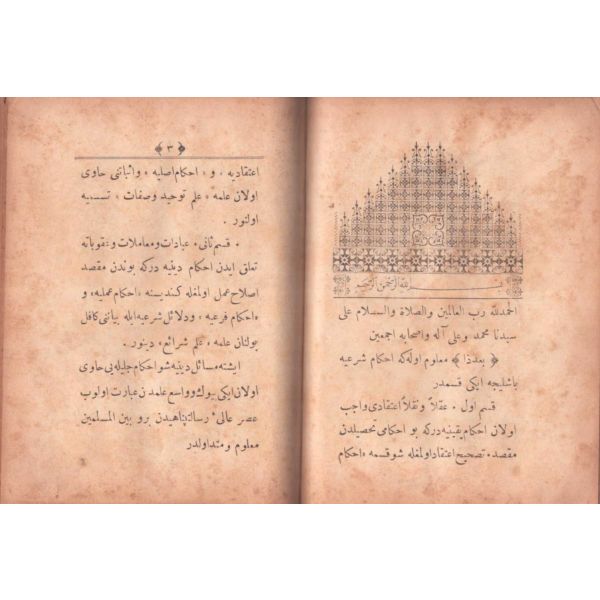 بسم الله الرحمن الرحيم
الحمدلله رب العالمين والصلاة والسلام على
سيدنا محمد وعلى آله واصحابه اجمعين
﴿ بعدذا ﴾ معلوم اوله كه احكام شرعيه
باشليجه ايكى قسمدر
قسم اول ٠ عقلاً ونقلاً اعتقادى واجب
اولان احكام يقينيه دركه بو احكامى تحصيلدن
مقصد « تصحيح اعتقاد اولمغله شو قسمه « احكام
﴿ ٣ ﴾
اعتقاديه ٠ و « احكام اصليه » واثباتنى حاوى
اولان علمه « علم توحيد وصفات » تسميه
اولنور ٠
قسم ثانى ٠ عبادات ومعاملات وعقوباته
تعلق ايدن احكام دينيه دركه بوندن مقصد
اصلاح عمل اولمغله كنديسنه « احكام عمليه » و
« احكام فرعيه » ودلائل شرعيه ايله بياننى كافل
بولنان علمه « علم شرائع » دينور ٠
ايشته مسائل دينيه شو احكام جليله يى حاوى
اولان ايكى بيوك وواسع علمدن عبارت اولوب
عصر عالىٔ رسالتپناهيدن برو بين المسلمين
معلوم ومتداولدر